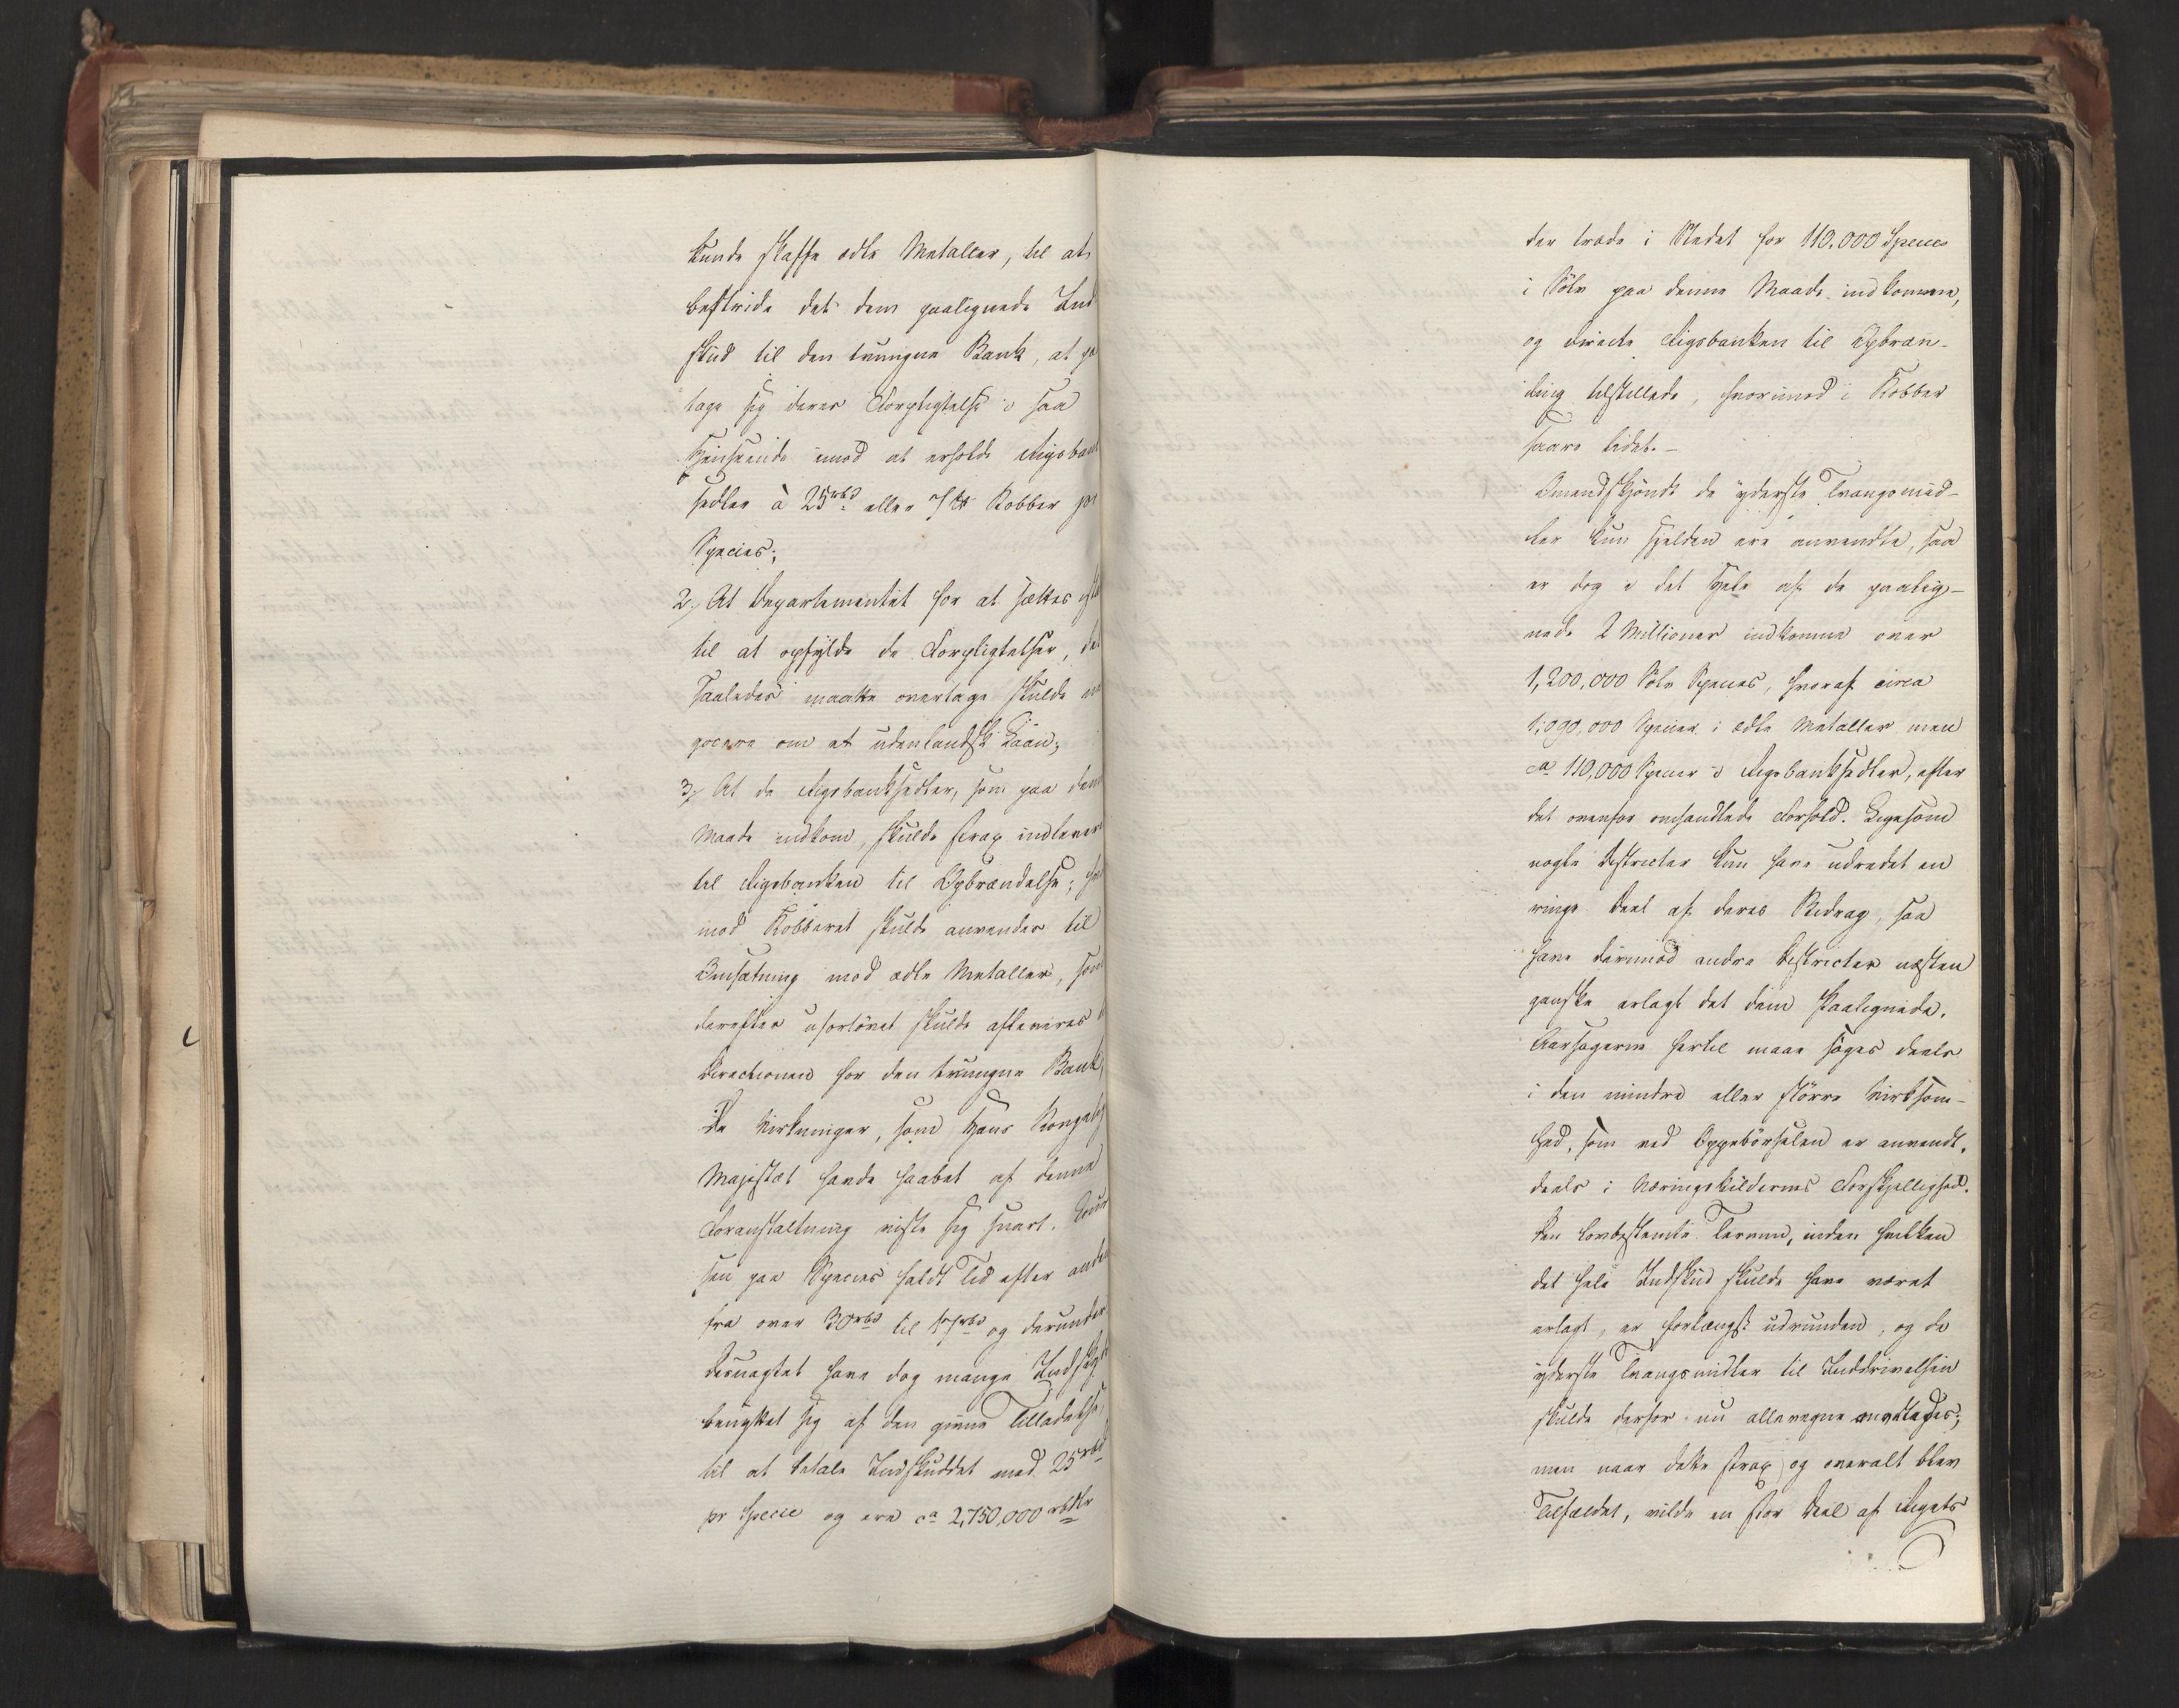 kunde skaffe ædle Metaller, til at
bestride det dem paalignede Ind
skud til den tvungne Bank, at paa
tage sig deres Forpligtelse i saa
Henseende imod at erholde Rigsbank
sedler à 25 rbd eller Kobber pr
Species;
2, At Departementet for at sættes
til at opfylde de Forpligtelser, det
saaledes maatte overtage skulde ne
gocere om et udenlandsk Laan;
3, At de Rigsbanksedler, som paa denne
Maade indkom, skulde strax indlevere
til Rigsbanken til Opbrændelse; hvor
mod Kobberet skulde anvendes til
Omsætning mod ædle Metaller, som
derefter ufortövet skulde afleveres
Directionen for den tvungne Bank,
De Virkninger, som Hans Kongelig
Majestæt havde haabet af denne
Foranstaltning viste sig snart. Cour
sen paa Species faldt Tid efter anden
fra over 30 rbd til rbd og derunder
desuagtet have dog mange Indskyde
benyttet sig af den givne Tilladelse,
til at betale Indskuddet med 25 rbd
pr Specie og ere ca 2,750,000 rbdlr
der træde i Stedet for 110.000 Specier
i Sölv paa denne Maade indkomne,
og directe Rigsbanken til Opbræn-
ding tilstillede, hvorimod i Kobber
saare lidet. -
Omendskjöndt de yderste Tvangsmid-
ler kun sjelden ere anvendte, saa
er dog i det Hele af de paalig-
nede 2 Millioner indkomne over
1,200,000 Sölv Species, hvoraf circa
1,090,000 Specier i ædle Metaller men
ca 110,000 Specier i Rigsbanksedler, efter
det ovenfor omhandlede Forhold. Ligesom
nogle Districter kun have udredet en
ringe Deel af deres Bidrag, saa
have derimod andre Districter næsten
ganske erlagt det dem Paalignede.
Aarsagerne hertil maae söges deels
i den mindre eller större Virksom-
hed, som ved Oppebörselen er anvendt,
deels i Næringskildernes Forskjellighed.
Den lovbestemte Termin, inden hvilken
det hele Indskud skulde have været
erlagt, er forlængst udrunden, og de
yderste Tvangsmidler til Inddrivelsen
skulde derfor nu allevegne modtages;
men naar dette strax og overalt blev
Tilfældet, vilde en stor Deel af Rigets